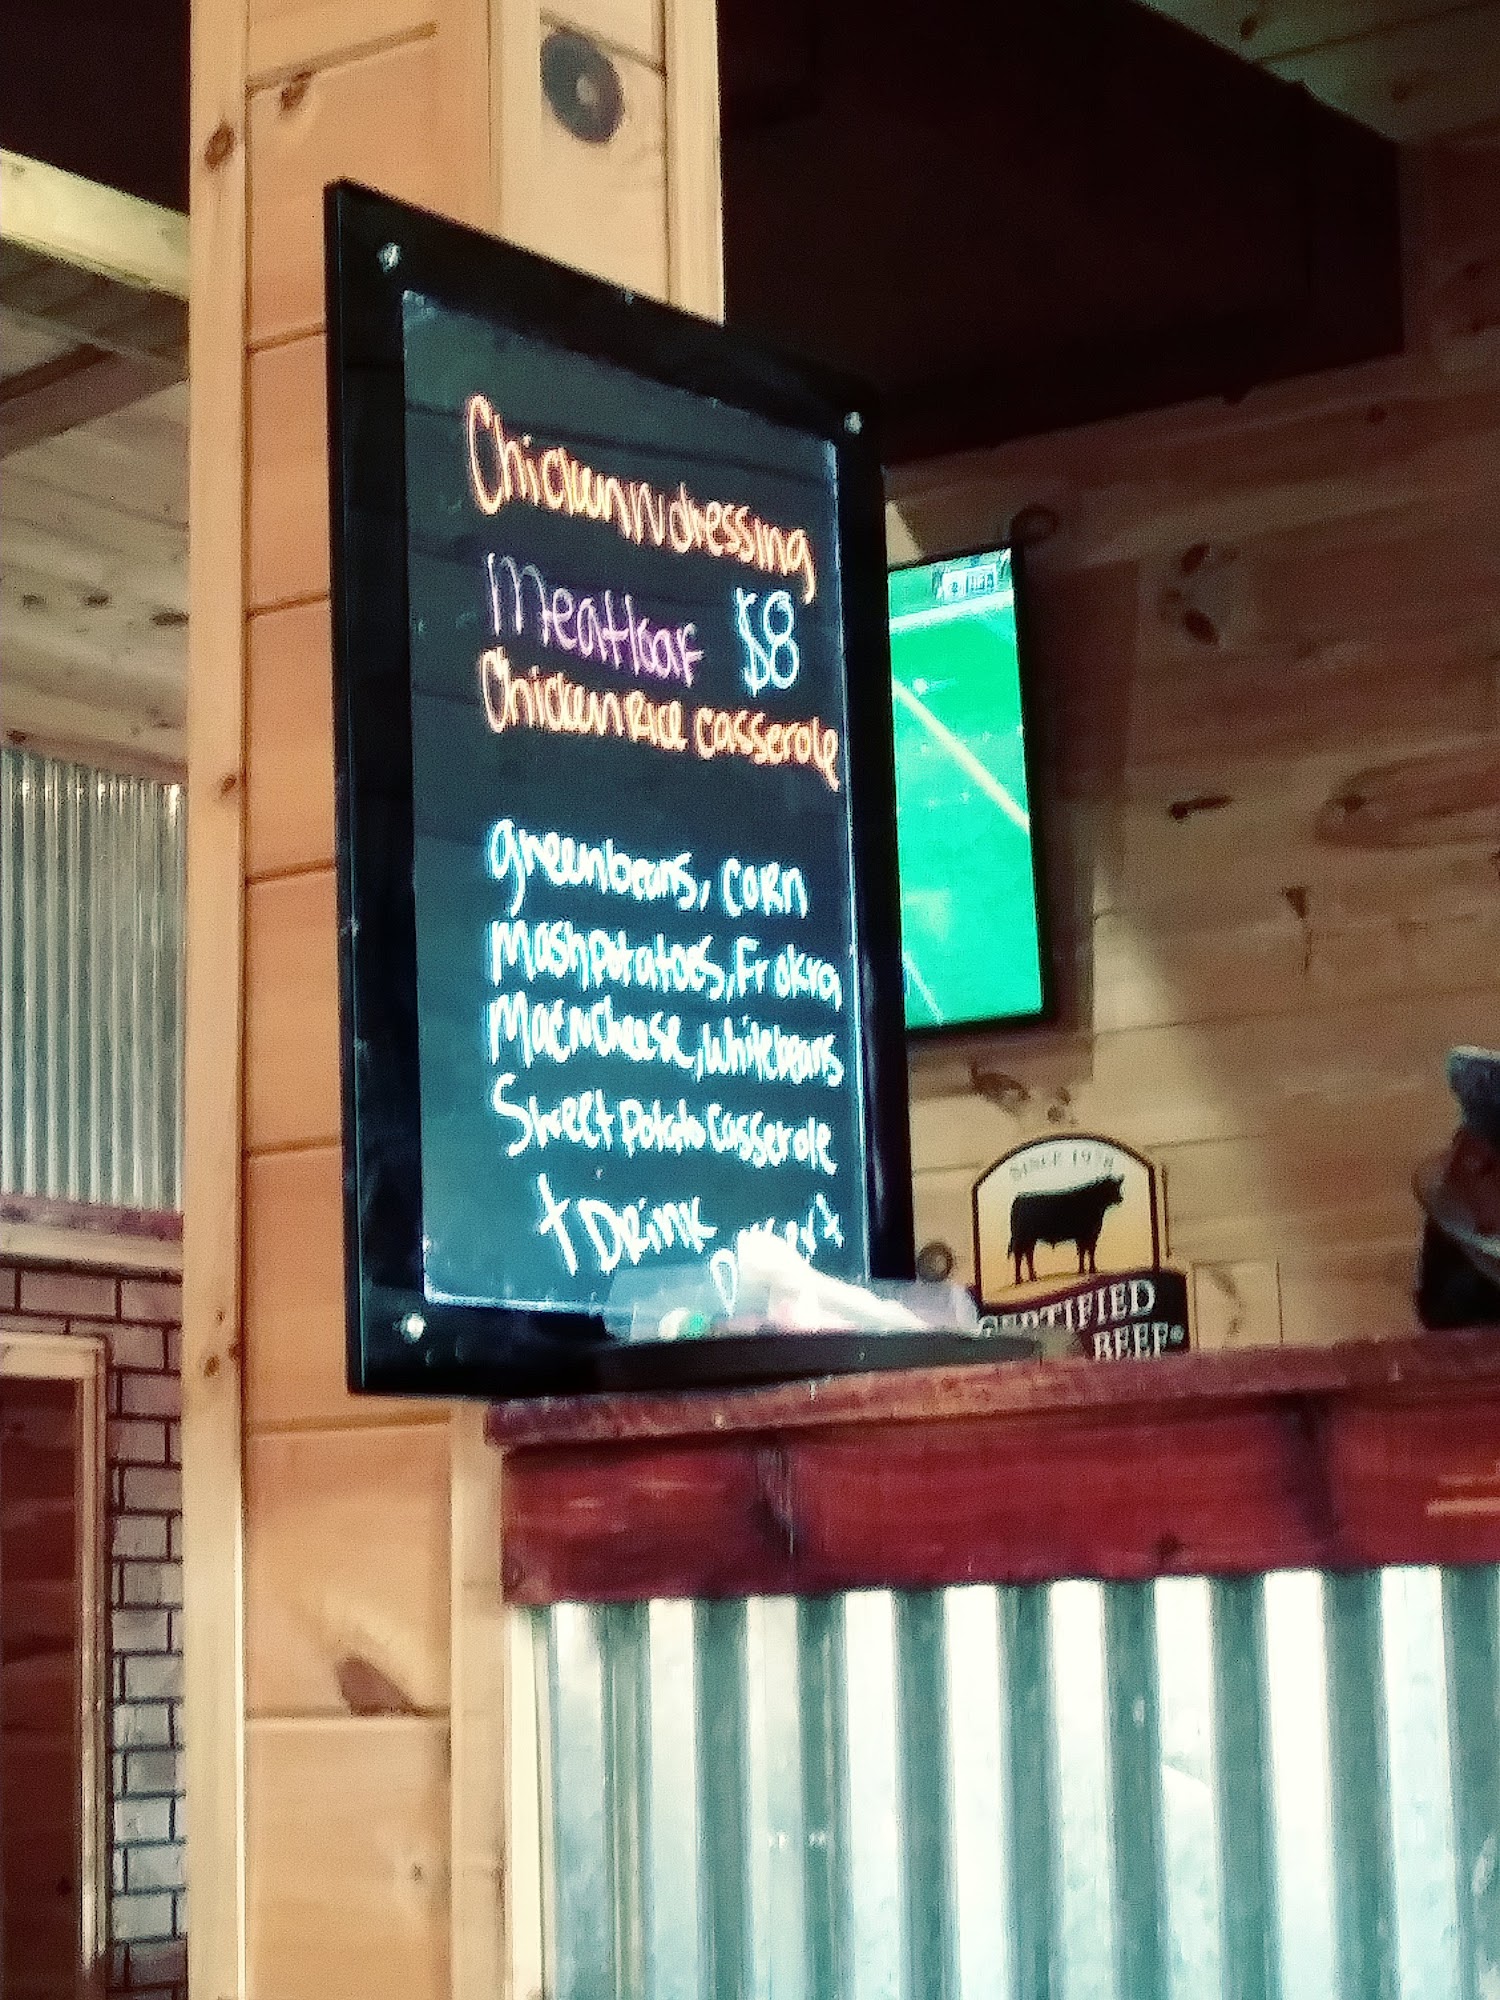 Chicken N dressing
Meatloaf $8
Chicken Rice casserole
greenbeans, corn
Mashpotatoes, Fr okra
Mac N Cheese, white beans
Sweet Potato Casserole
+ Drink
SINCE 1978
CERTIFIED
BEEF®